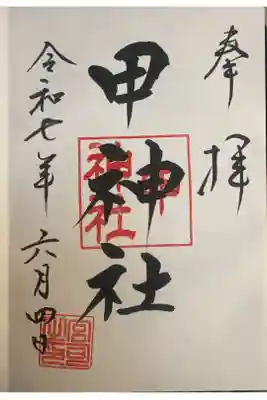 奉拝
甲神社
甲神社
令和七年六月四日